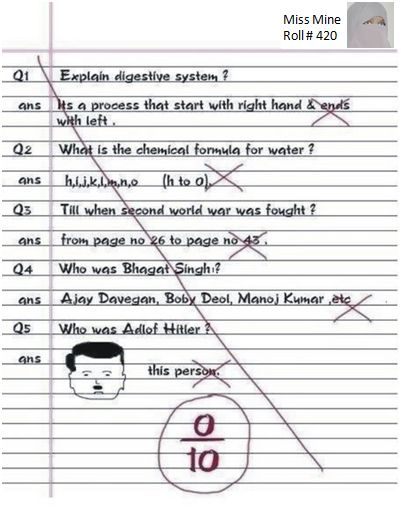 Miss Mine
Roll# 420
Q1 Explain digestive system ?
ans Its a process that start with right hand & ends
with left .
Q2 What is the chemical formula for water ?
ans h,i,j,k,l,m,n,o (h to o).
Q3 Till when second world war was fought ?
ans from page no 26 to page no 43 .
Q4 Who was Bhagat Singh ?
ans Ajay Davegan, Boby Deol, Manoj Kumar ,etc
Q5 Who was Adlof Hitler ?
ans this person.
0
10